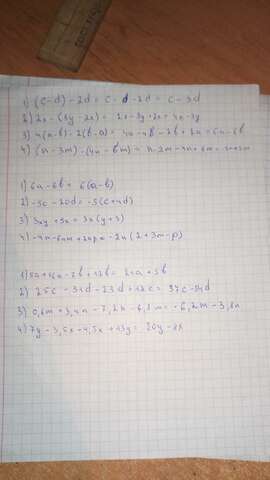 1) (c-d)-2d = c-d-2d = c-3d
2) 2x-(3y-2x) = 2x-3y+2x = 4x-3y
3) 4(a-b)-2(b-a) = 4a-4b-2b+2a = 6a-6b
4) (n-3m)-(4n-6m) = n-3m-4n+6m =
1) 6a-6b = 6(a-b)
2) -5c-20d = -5(c+4d)
3) 3xy+9x = 3x(y+3)
4) -4n-6nm+2np = -2n(2+3m-p)
1) 5a+16a-7b+12b = 21a+5b
2) 25c-31d-23d+12c = 37c-54d
3) 0,6m+3,4n-7,2n-6,8m = -6,2m-3,8n
4) 7y-3,5x-4,5x+13y = 20y-8x